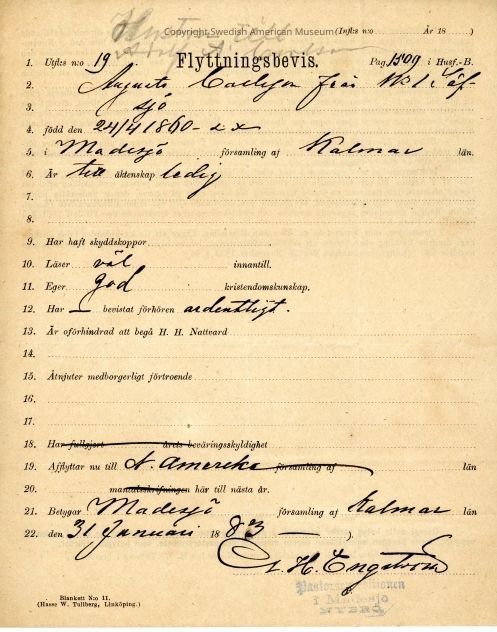 Copyright Swedish American Museum
(Infl:s n:o År 18 )
1. Utfl:s n:o 19 Flyttningsbevis. Pag. 1509 i Husf.-B.
2. Augusta Carlsson från No 1 i Löf-
3. sjö
4. född den 24/4 1860
5. i Madesjö församling af Kalmar län.
6. Är till äktenskap ledig
7.
8.
9. Har haft skyddskoppor
10. Läser väl innantill.
11. Eger god kristendomskunskap.
12. Har — bevistat förhören ordentligt.
13. Är oförhindrad att begå H. H. Nattvard
14.
15. Åtnjuter medborgerligt förtroende
16.
17.
18. Har fullgjort årets beväringsskyldighet
19. Afflyttar nu till N. Amerika församling af län
20. mantalsskrifningen här till nästa år.
21. Betygar Madesjö församling af Kalmar län
22. den 31 Januari 1883 — ).
H. Engström
Pastorsexpeditionen
i Madesjö
NYBRO
Blankett N:o 11.
(Hasse W. Tullberg, Linköping.)